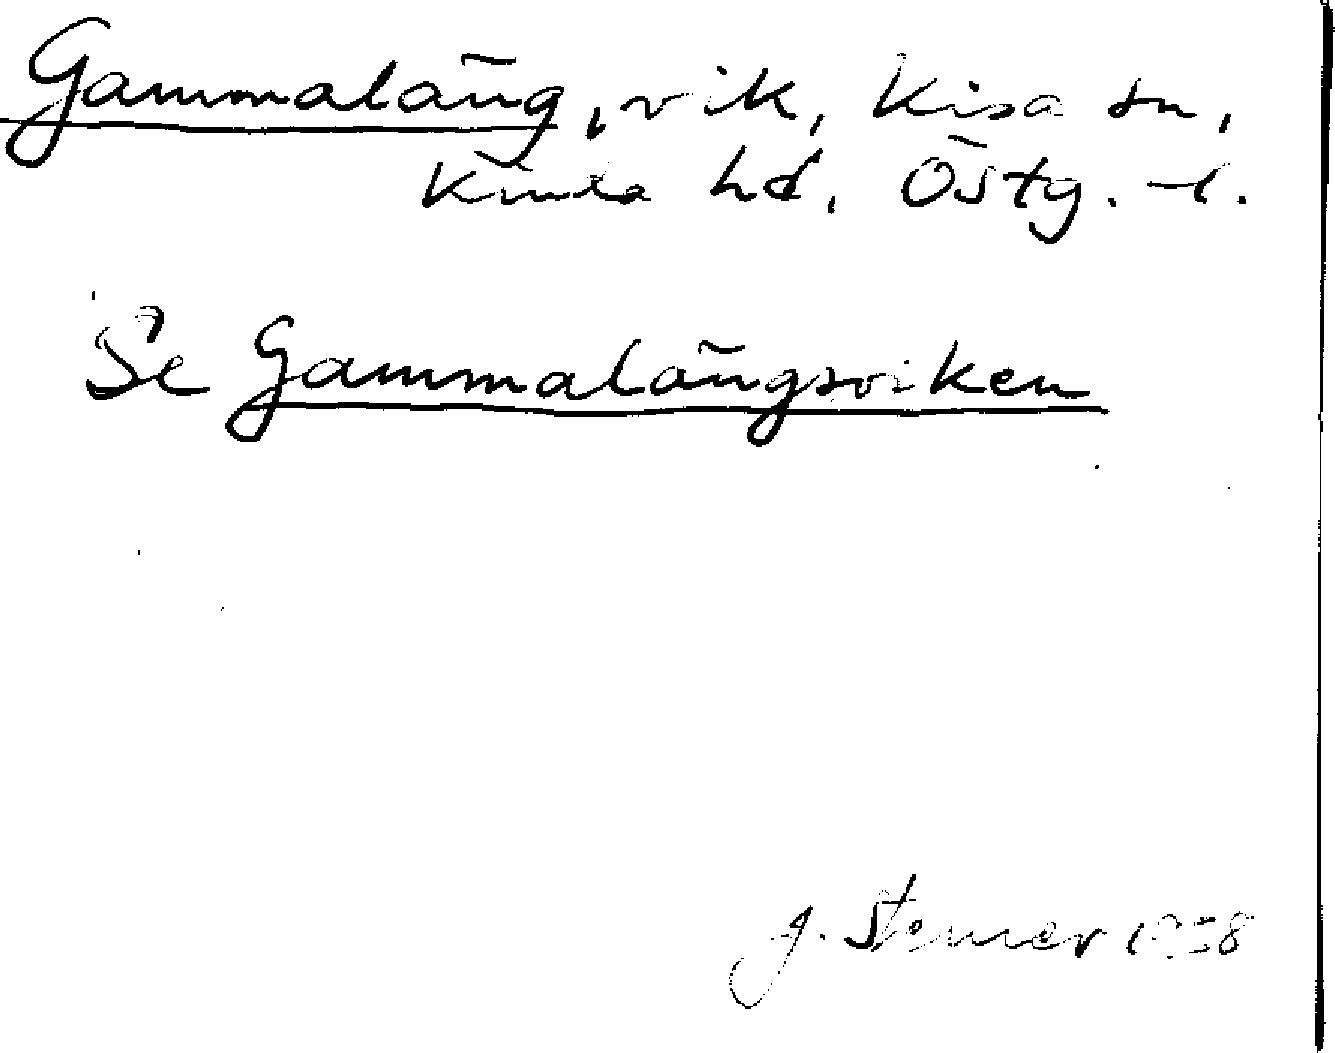 Gammaläng, vik, Kisa sn,
Kinda hd, Östg. l.
Se Gammalängsviken
J. Stenner 1958